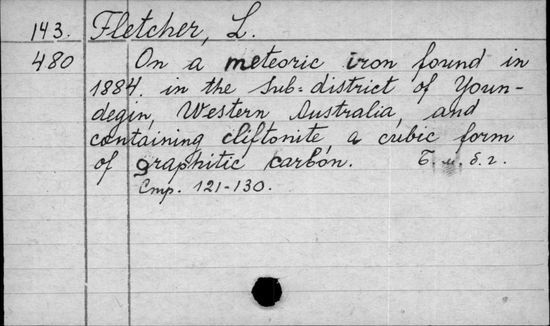 143. Fletcher, L.
480 On a meteoric iron found in
1884. in the sub-district of Youn-
degin, Western Australia, and
containing cliftonite, a cubic form
of graphitic carbon. Б. и. д. г.
Стр. 121-130.